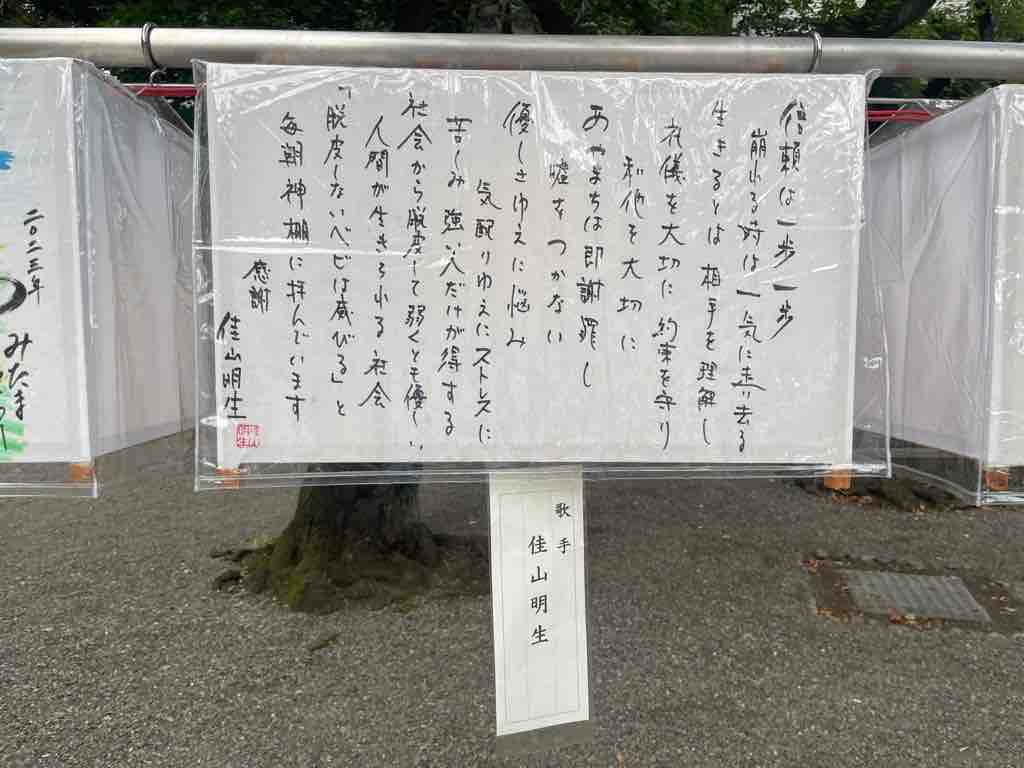 信頼は一歩一歩
崩れる時は一気に走り去る
生きるとは相手を理解し
礼儀を大切に約束を守り
和他を大切に
あやまちは即謝罪し
嘘をつかない
優しさゆえに悩み
気配りゆえにストレスに
苦しみ強い人だけが得する
社会から脱皮して弱くとも優しい
人間が生きられる社会
「脱皮しないヘビは滅びる」と
毎朝神棚に拝んでいます
感謝
佳山明生
歌手
佳山明生
二〇二三年
みたま